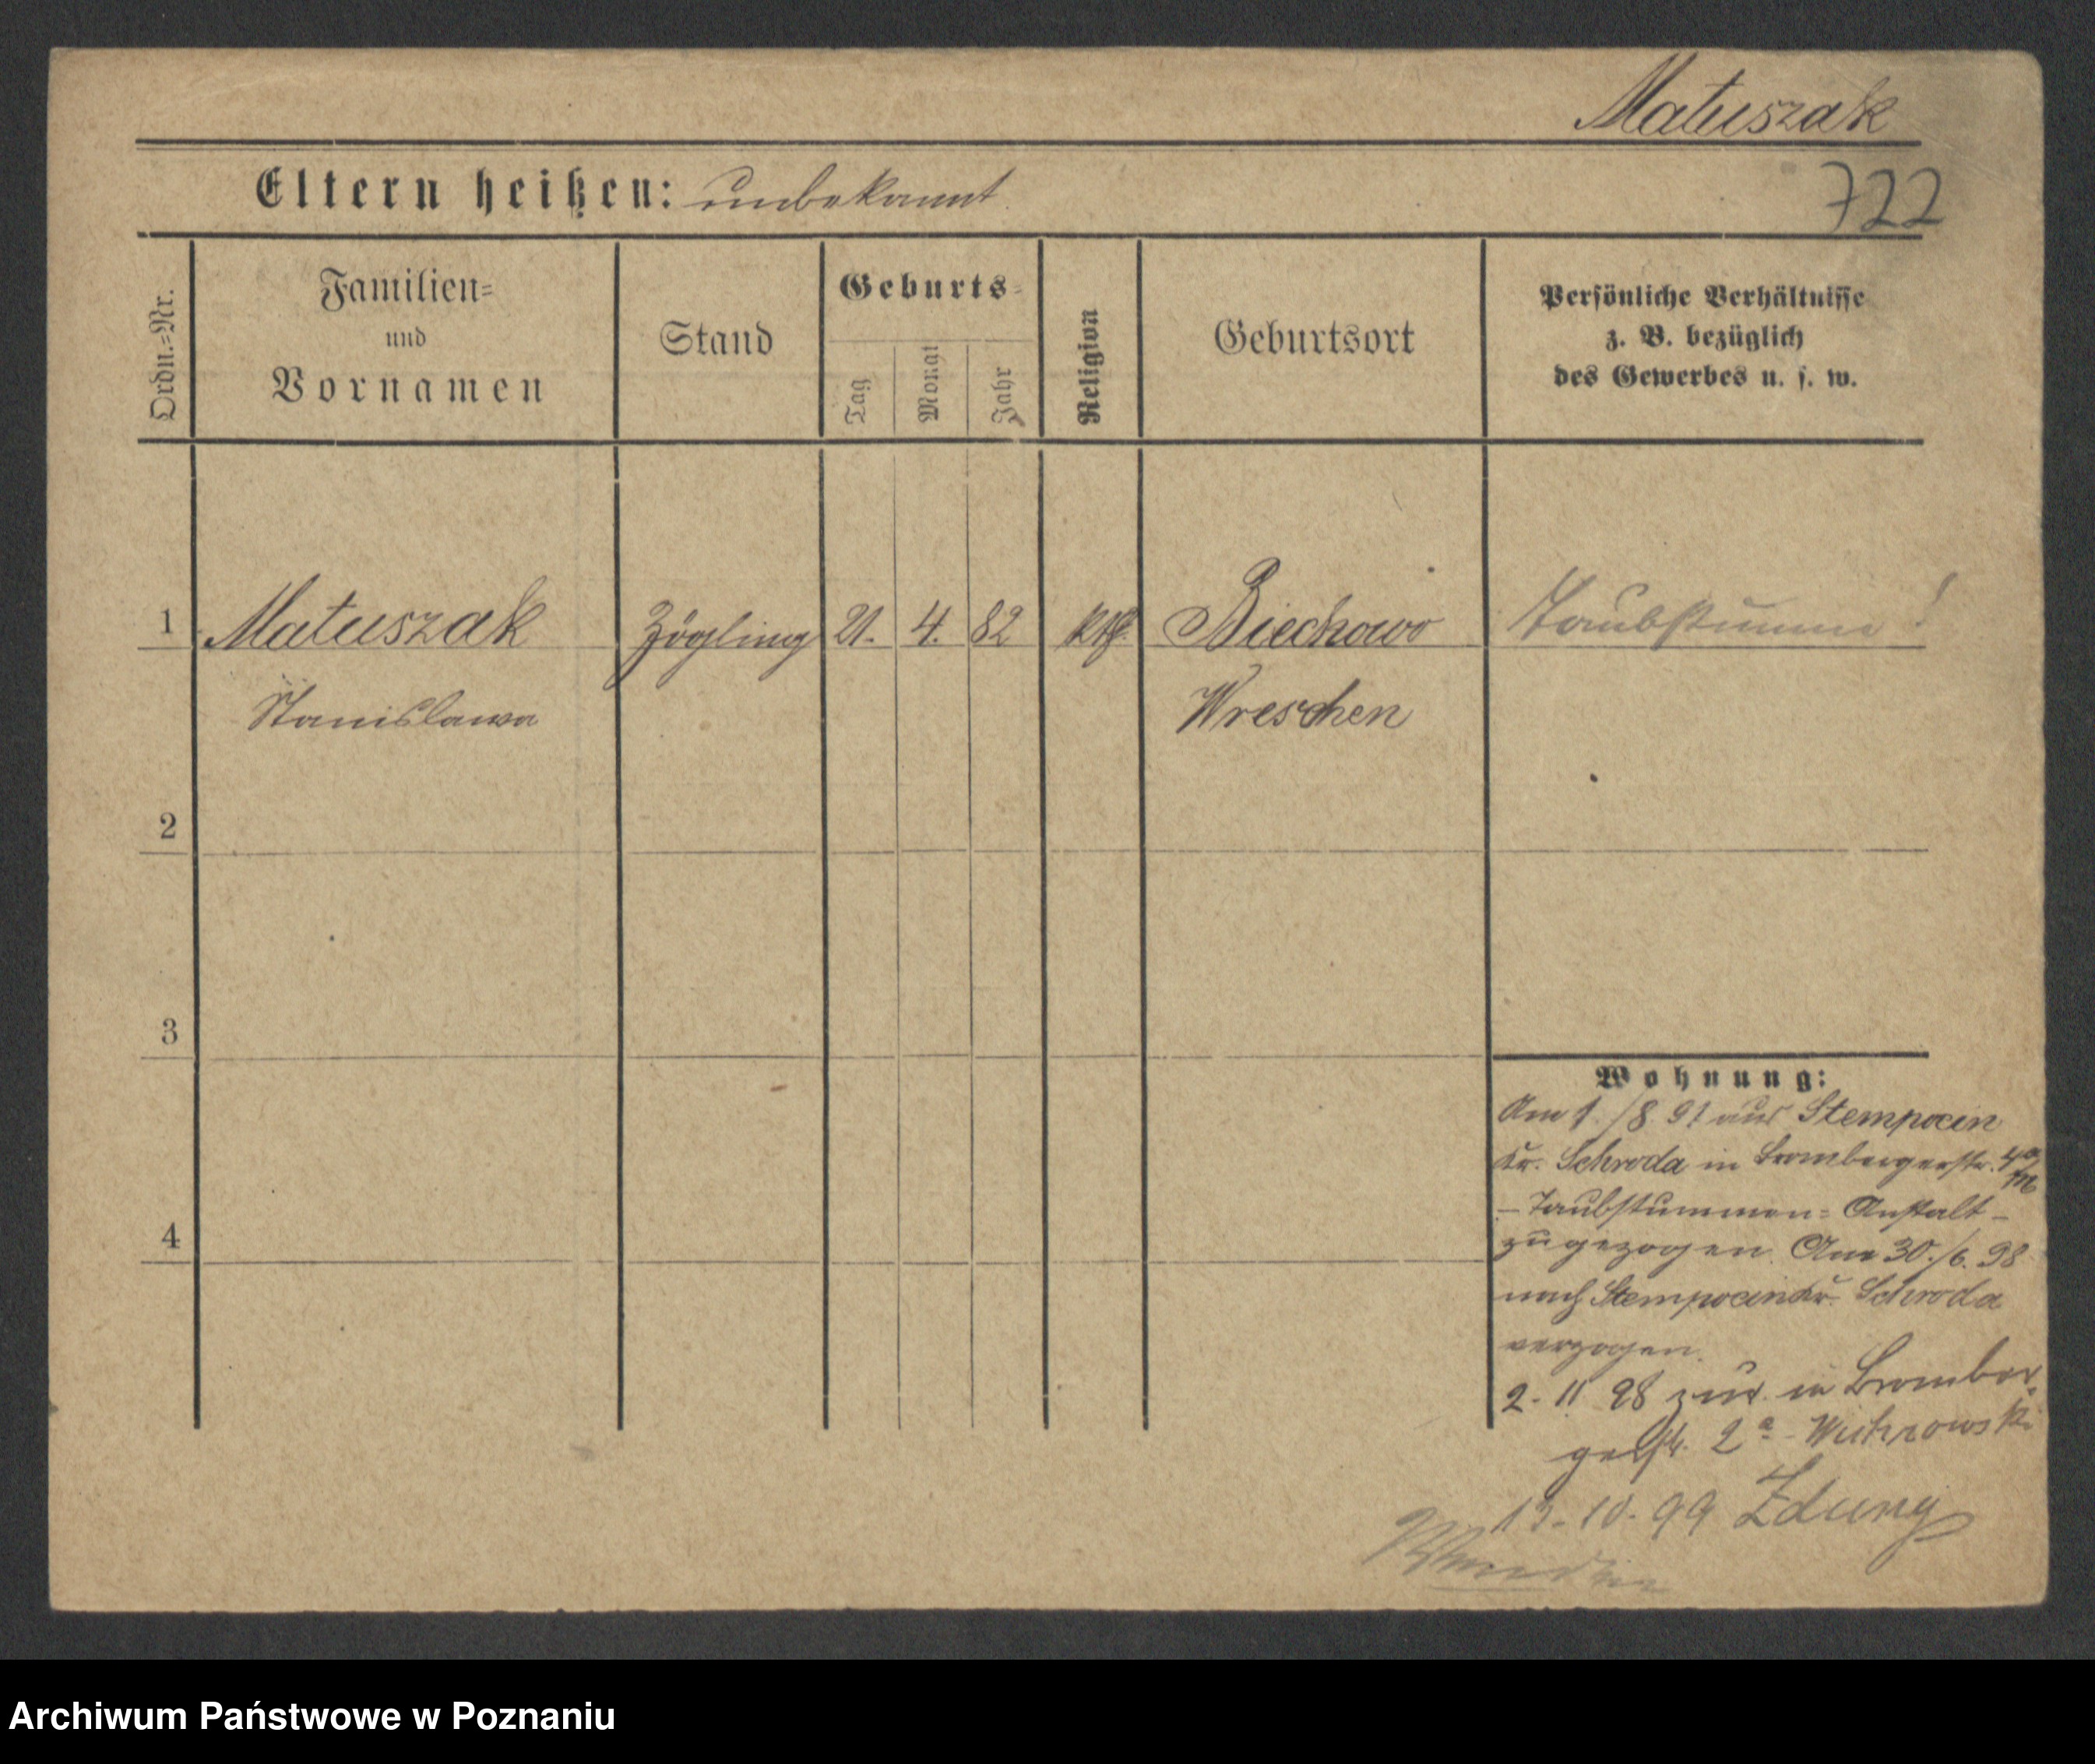 Matuszak
Eltern heißen: unbekannt.
722
Ordn.=Nr.
Familien=
und
Vornamen
Stand
Geburts-
Tag
Monat
Jahr
Religion
Geburtsort
Persönliche Verhältnisse
z. B. bezüglich
des Gewerbes u. s. w.
1 Matuszak Zögling 21. 4. 82 kth. Biechowo Taubstumm !
Stanislawa Wreschen
2
3
4
Wohnung:
Am 1./8. 91 aus Stempocin
Kr. Schroda in Brombergerstr. 4a
- Taubstummen=Anstalt -
zugezogen. Am 30./6. 98
nach Stempocin Kr. Schroda
verzogen.
2. 11 98 zur. in Bromber
gerstr. 2a
13. 10. 99 Zduny
Archiwum Państwowe w Poznaniu